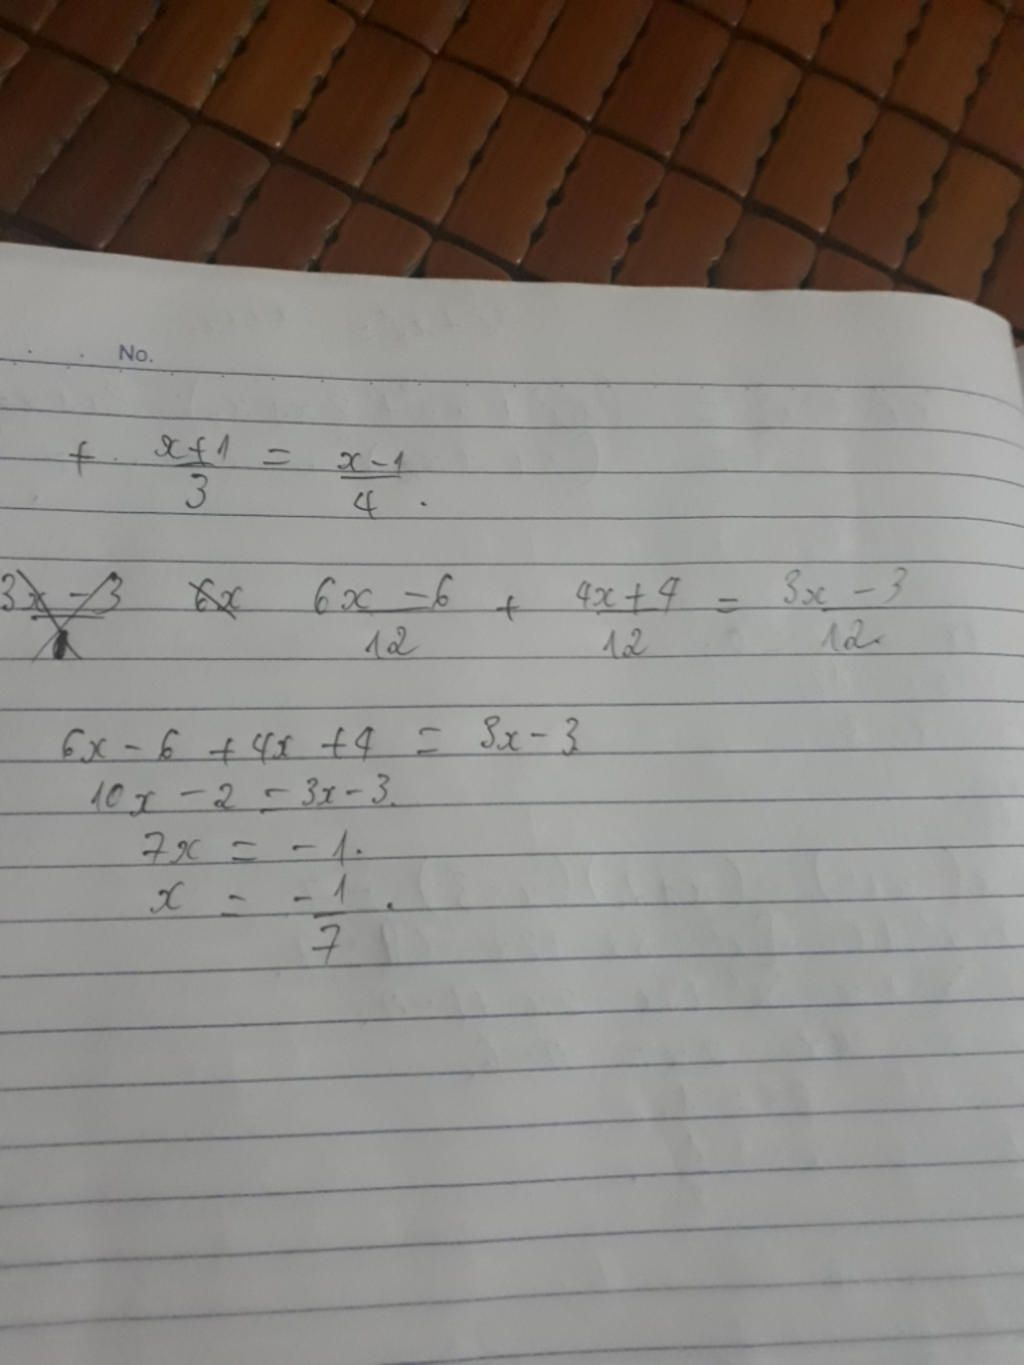 No.
+ x+1/3 = x-1/4.
3x-3 6x 6x-6/12 + 4x+4/12 = 3x-3/12.
6x-6+4x+4 = 3x-3
10x-2=3x-3.
7x = -1.
x = -1/7.